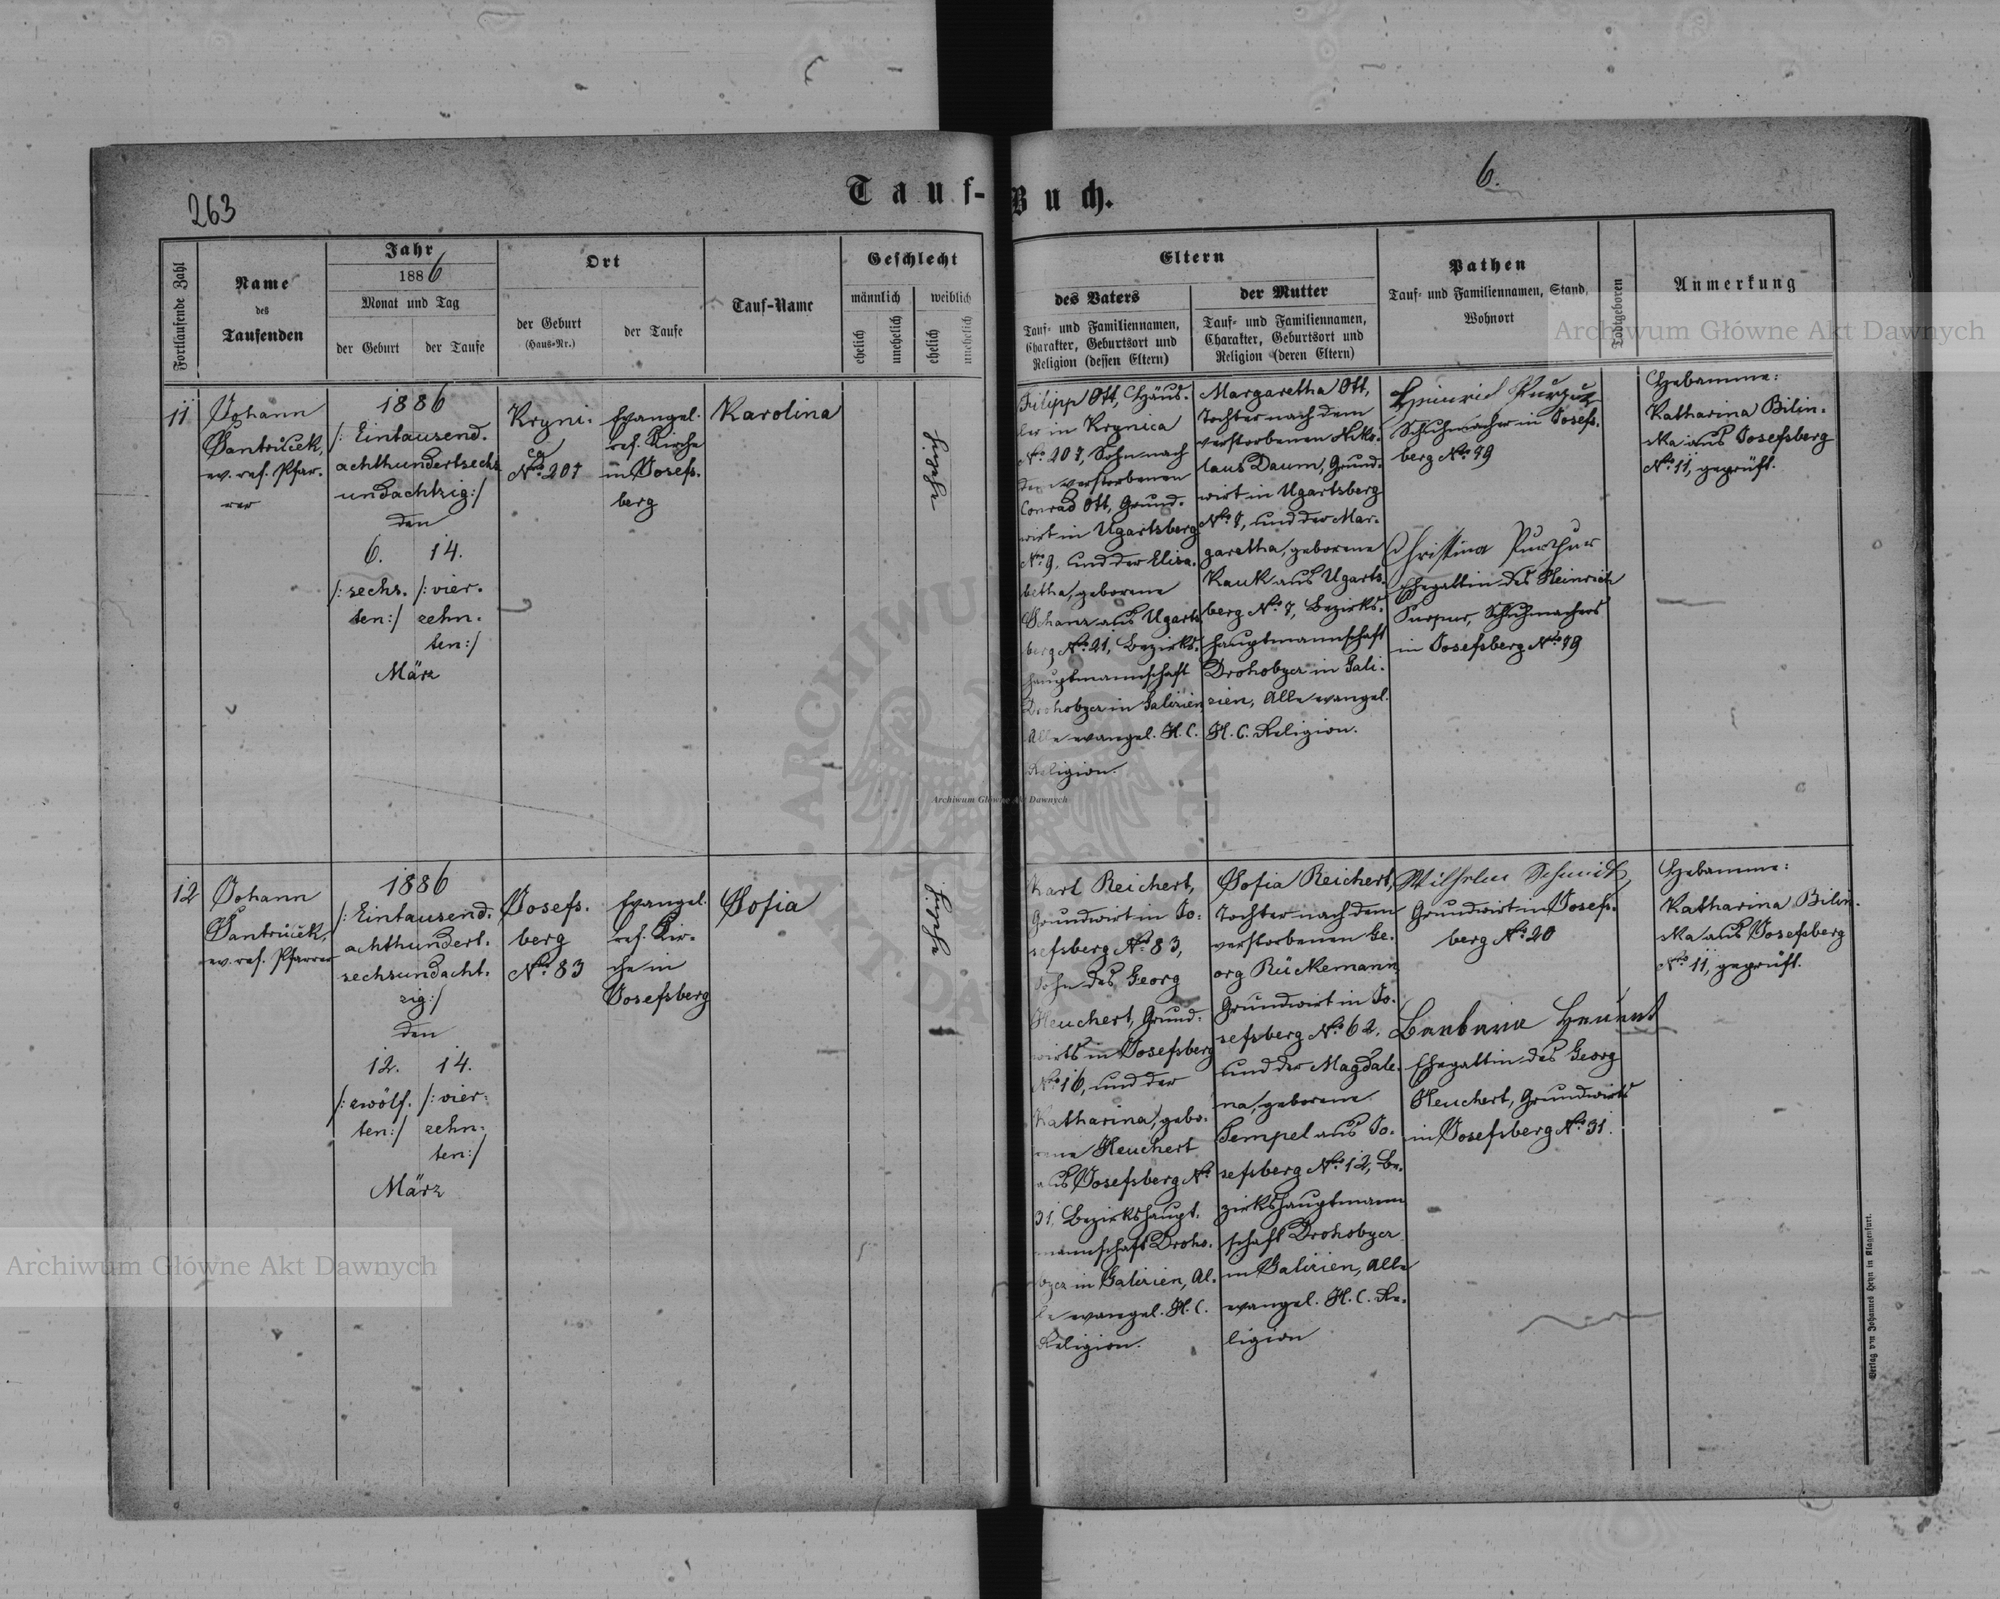 263
6.
Tauf-Buch.
Fortlaufende Zahl
Name
des
Taufenden
Jahr
1886
Monat und Tag
der Geburt
der Taufe
Ort
der Geburt
(Haus-Nr.)
der Taufe
Tauf-Name
Geschlecht
männlich
weiblich
ehelich
unehelich
ehelich
unehelich
Eltern
des Vaters
Tauf- und Familiennamen,
Charakter, Geburtsort und
Religion (dessen Eltern)
der Mutter
Tauf- und Familiennamen,
Charakter, Geburtsort und
Religion (deren Eltern)
Pathen
Tauf- und Familiennamen, Stand,
Wohnort
Todtgeboren
Anmerkung
11
Johann
Šantrůček,
ev. ref. Pfar-
rer
1886
/: Eintausend-
achthundertsechs
undachtzig :/
den
6.
/: sechs-
ten :/
14.
/: vier-
zehn-
ten :/
März
Kryni-
ca
No. 207
Evangel.
ref. Kirche
in Josefs-
berg
Karolina
ehelich
Filipp Ott, Häus-
ler in Krynica
No. 207, Sohn nach
dem verstorbenen
Conrad Ott, Grund-
wirt in Ugartsberg
No. 9, und der Elisa-
betha, geborene
Schanz aus Ugarts-
berg No. 21, Bezirks-
hauptmannschaft
Drohobycz in Galizien,
Alle evangel. H. C.
Religion.
Margaretha Ott,
Tochter nach dem
verstorbenen Niko-
laus Daum, Grund-
wirt in Ugartsberg
No. 7, und der Mar-
garetha, geborene
Kauk aus Ugarts-
berg No. 7, Bezirks-
hauptmannschaft
Drohobycz in Gali-
zien, Alle evangel.
H. C. Religion.
Heinrich Purpur
Schuhmacher in Josefs-
berg No. 79
Christina Purpur
Ehegattin des Heinrich
Purpur, Schuhmachers
in Josefsberg No. 79
Hebamme:
Katharina Bilin-
ska aus Josefsberg
No. 11, geprüft.
12
Johann
Šantrůček,
ev. ref. Pfarrer
1886
/: Eintausend-
achthundert-
sechsundacht-
zig :/
den
12.
/: zwölf-
ten :/
14.
/: vier-
zehn-
ten :/
März
Josefs-
berg
No. 83
Evangel.
ref. Kir-
che in
Josefsberg
Sofia
ehelich
Karl Reichert,
Grundwirt in Jo-
sefsberg No. 83,
Sohn des Georg
Reichert, Grund-
wirts in Josefsberg
No. 16, und der
Katharina, gebo-
rene Heuchert
aus Josefsberg No.
31, Bezirkshaupt-
mannschaft Droho-
bycz in Galizien, Al-
le evangel. H. C.
Religion.
Sofia Reichert,
Tochter nach dem
verstorbenen Ge-
org Rückemann,
Grundwirt in Jo-
sefsberg No. 62,
und der Magdale-
na, geborene
Tempel aus Jo-
sefsberg No. 12, Be-
zirkshauptmann
schaft Drohobycz
in Galizien, Alle
evangel. H. C. Re-
ligion
Wilhelm Schmidt,
Grundwirt in Josefs-
berg No. 20
Barbara Heuchert
Ehegattin des Georg
Heuchert, Grundwirts
in Josefsberg No. 31.
Hebamme:
Katharina Bilin-
ska aus Josefsberg
No. 11, geprüft.
Verlag von Johannes Heyn in Klagenfurt.
Archiwum Główne Akt Dawnych
Archiwum Główne Akt Dawnych
Archiwum Główne Akt Dawnych